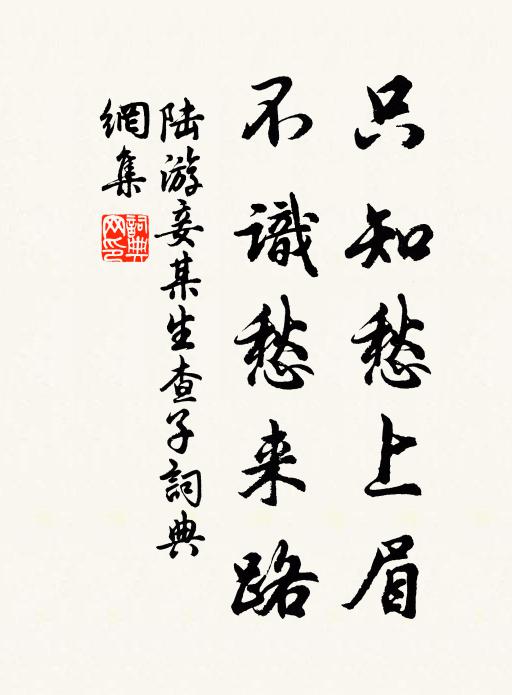 只知愁上眉
不識愁来路
陆游妾某生查子詞典
網集
詞典
网印